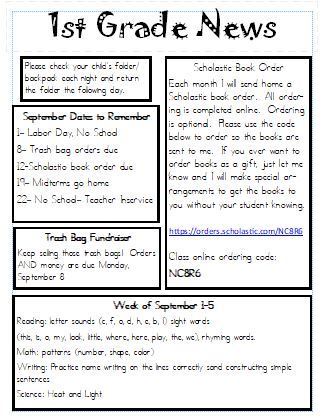 1st Grade News
Please check your child's folder/
backpack each night and return
the folder the following day.
September Dates to Remember
1- Labor Day, No School
8- Trash bag orders due
12-Scholastic book order due
19- Midterms go home
22- No School- Teacher Inservice
Trash Bag Fundraiser
Keep selling those trash bags! Orders
AND money are due Monday,
September 8
Scholastic Book Order
Each month I will send home a
Scholastic book order. All order-
ing is completed online. Ordering
is optional. Please use the code
below to order so the books are
sent to me. If you ever want to
order books as a gift, just let me
know and I will make special ar-
rangements to get the books to
you without your student knowing.
https://orders.scholastic.com/NC8R6
Class online ordering code:
NC8R6
Week of September 1-5
Reading: letter sounds (c, f, o, d, h, e, b, l) sight words
(this, is, o, my, look, little, where, here, play, the, we), rhyming words.
Math: patterns (number, shape, color)
Writing: Practice name writing on the lines correctly sand constructing simple
sentences
Science: Heat and Light